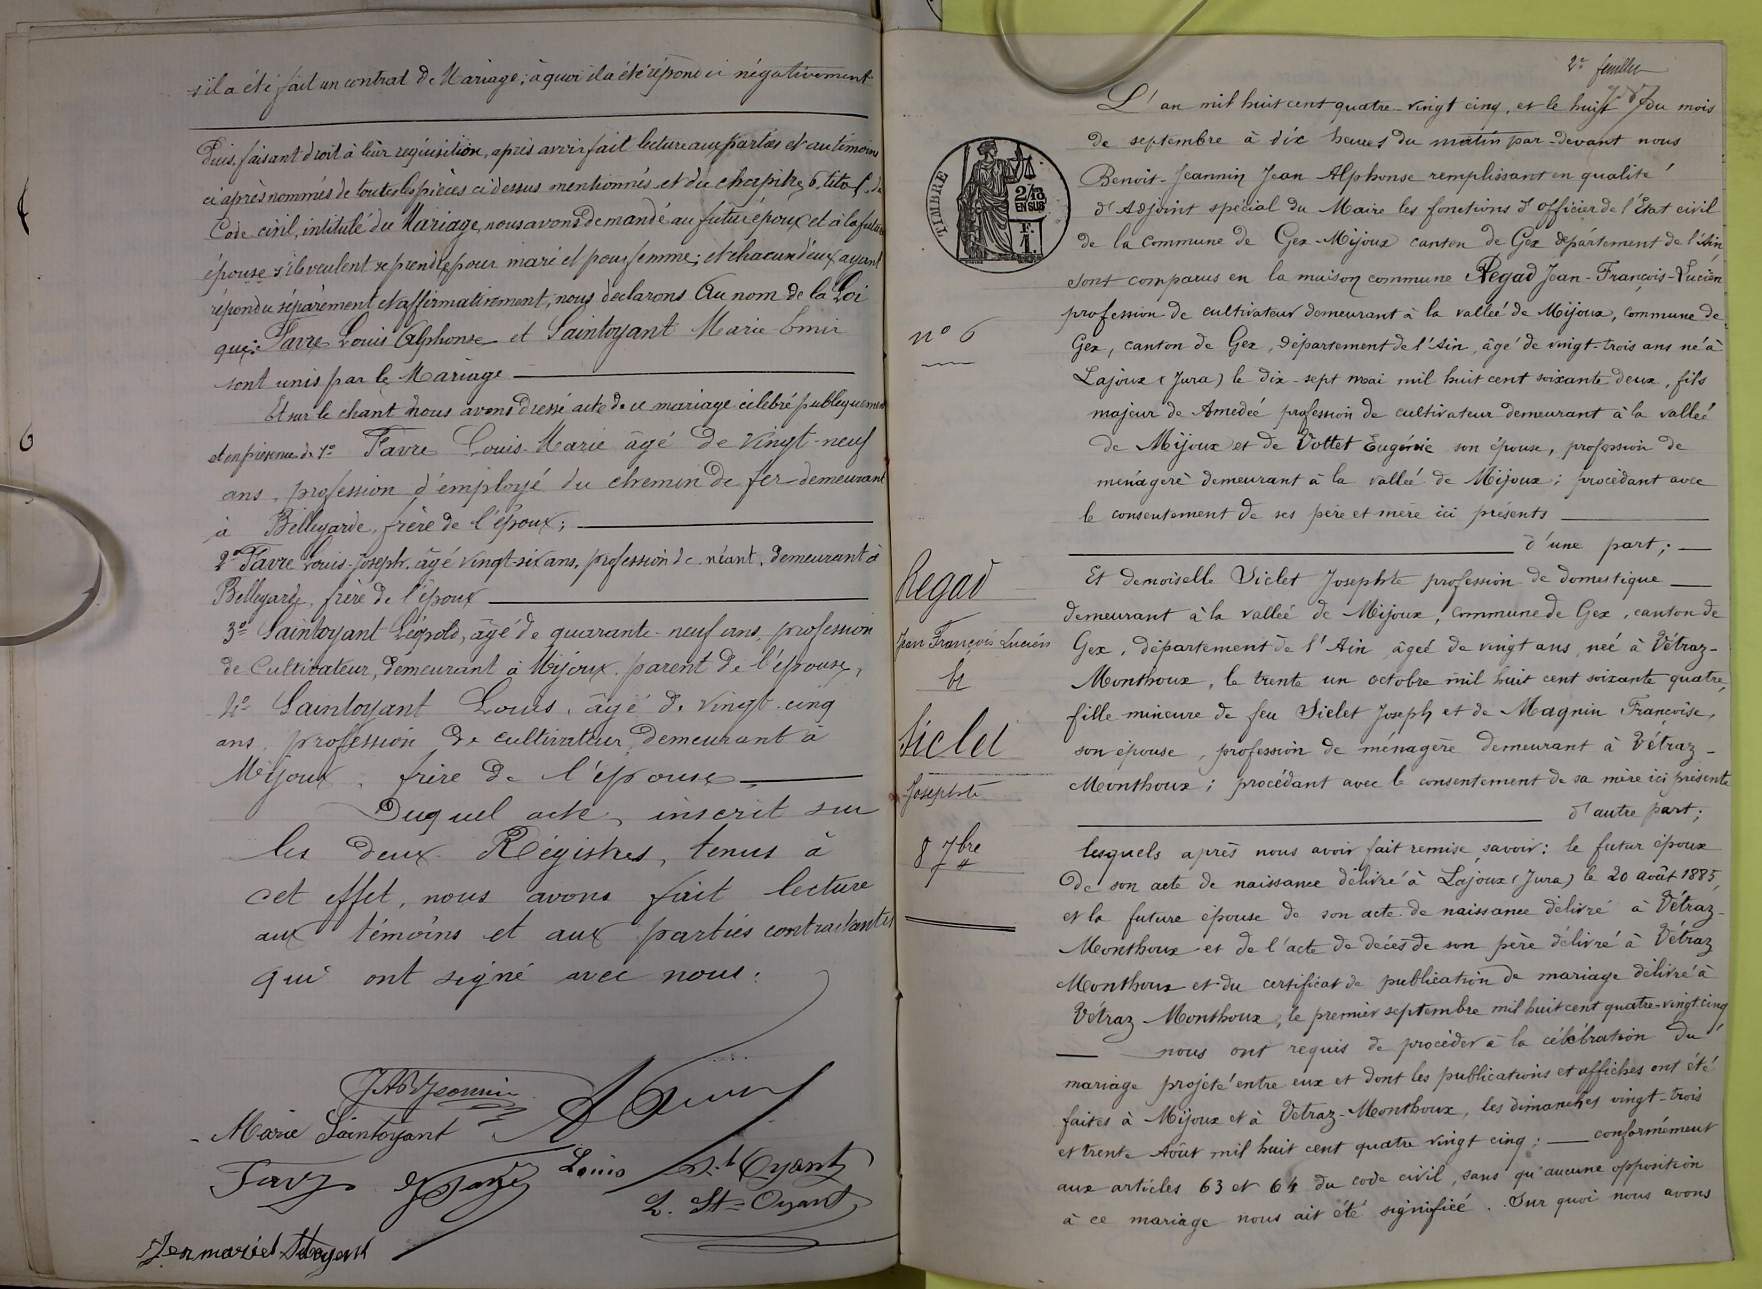 s'il a été fait un contrat de Mariage; à quoi il a été répondu négativement
Puis, faisant droit à leur requisition, après avoir fait lecture aux parties et au témoins
ci après nommés de toutes les pièces ci dessus mentionnés et du chapitre 6, titre 5, du
Code civil, intitulé du Mariage, nous avons demandé au futur époux et à la future
épouse s'ils veulent se prendre pour mari et pour femme; et chacun d'eux ayant
répondu séparément et affirmativement, nous declarons Au nom de la Loi
que: Favre Louis Alphonse et Saintoyant Marie Emir
sont unis par le Mariage
Et sur le chant nous avons dressé acte de ce mariage célébré publiquement
et en présence de 1° Favre Louis-Marie âgé de vingt-neuf
ans, profession d'employé du chemin de fer demeurant
à Bellegarde, frère de l'époux;
2° Favre Louis-Joseph, âgé vingt-six ans, profession de néant, demeurant à
Bellegarde, frère de l'époux
3° Saintoyant Léopold, âgé de quarante-neuf ans, profession
de Cultivateur, demeurant à Mijoux, parent de l'épouse,
4° Saintoyant Louis, âgé de vingt-cinq
ans, profession de cultivateur, demeurant à
Mijoux, frère de l'épouse
Duquel acte, inscrit sur
les deux Régistres, tenus à
cet effet, nous avons fait lecture
aux témoins et aux parties contractantes
qui ont signé avec nous.
JABJeannin
Marie Saintoyant
Louis St Oyant
L. St-Oyant
2e feuillet
L'an mil huit cent quatre-vingt cinq, et le huit du mois
de septembre à dix heures du matin par-devant nous
Benoit-Jeannin Jean Alphonse remplissant en qualité
d'Adjoint spécial du Maire les fonctions d'officier de l'État civil
de la commune de Gex-Mijoux canton de Gex département de l'Ain
sont comparus en la maison commune Regad Jean-François-Lucien
profession de cultivateur demeurant à la valleé de Mijoux, commune de
Gex, canton de Gex, département de l'Ain, âgé de vingt-trois ans né à
Lajoux (Jura) le dix-sept mai mil huit cent soixante deux, fils
majeur de Amedeé profession de cultivateur demeurant à la valleé
de Mijoux et de Vottet Eugénie son épouse, profession de
ménagère demeurant à la valleé de Mijoux; procédant avec
le consentement de ses père et mère ici présents
d'une part;
Et demoiselle Siclet Josephte profession de domestique
demeurant à la valleé de Mijoux, commune de Gex, canton de
Gex, département de l'Ain âgeé de vingt ans, neé à Vétraz-
Monthoux, le trente un octobre mil huit cent soixante quatre,
fille mineure de feu Siclet Joseph et de Magnin Françoise,
son épouse, profession de ménagère demeurant à Vétraz-
Monthoux; procédant avec le consentement de sa mère ici présente
d'autre part;
lesquels après nous avoir fait remise, savoir: le futur époux
de son acte de naissance délivré à Lajoux (Jura) le 20 août 1885,
et la future épouse de son acte de naissance délivré à Vétraz-
Monthoux et de l'acte de décès de son père délivré à Vétraz
Monthoux et du certificat de publication de mariage délivré à
Vétraz Monthoux, le premier septembre mil huit cent quatre-vingt cinq
nous ont requis de procéder à la célébration du
mariage projeté entre eux et dont les publications et affiches ont été
faites à Mijoux et à Vetraz-Monthoux, les dimanches vingt-trois
et trente Août mil huit cent quatre vingt cinq; conformément
aux articles 63 et 64 du code civil, sans qu'aucune opposition
à ce mariage nous ait été signifieé. Sur quoi nous avons
TIMBRE
2/10
EN SUS
F.
1.
n° 6
Regad
Jean François Lucien
et
Siclet
Josephte
8 7bre